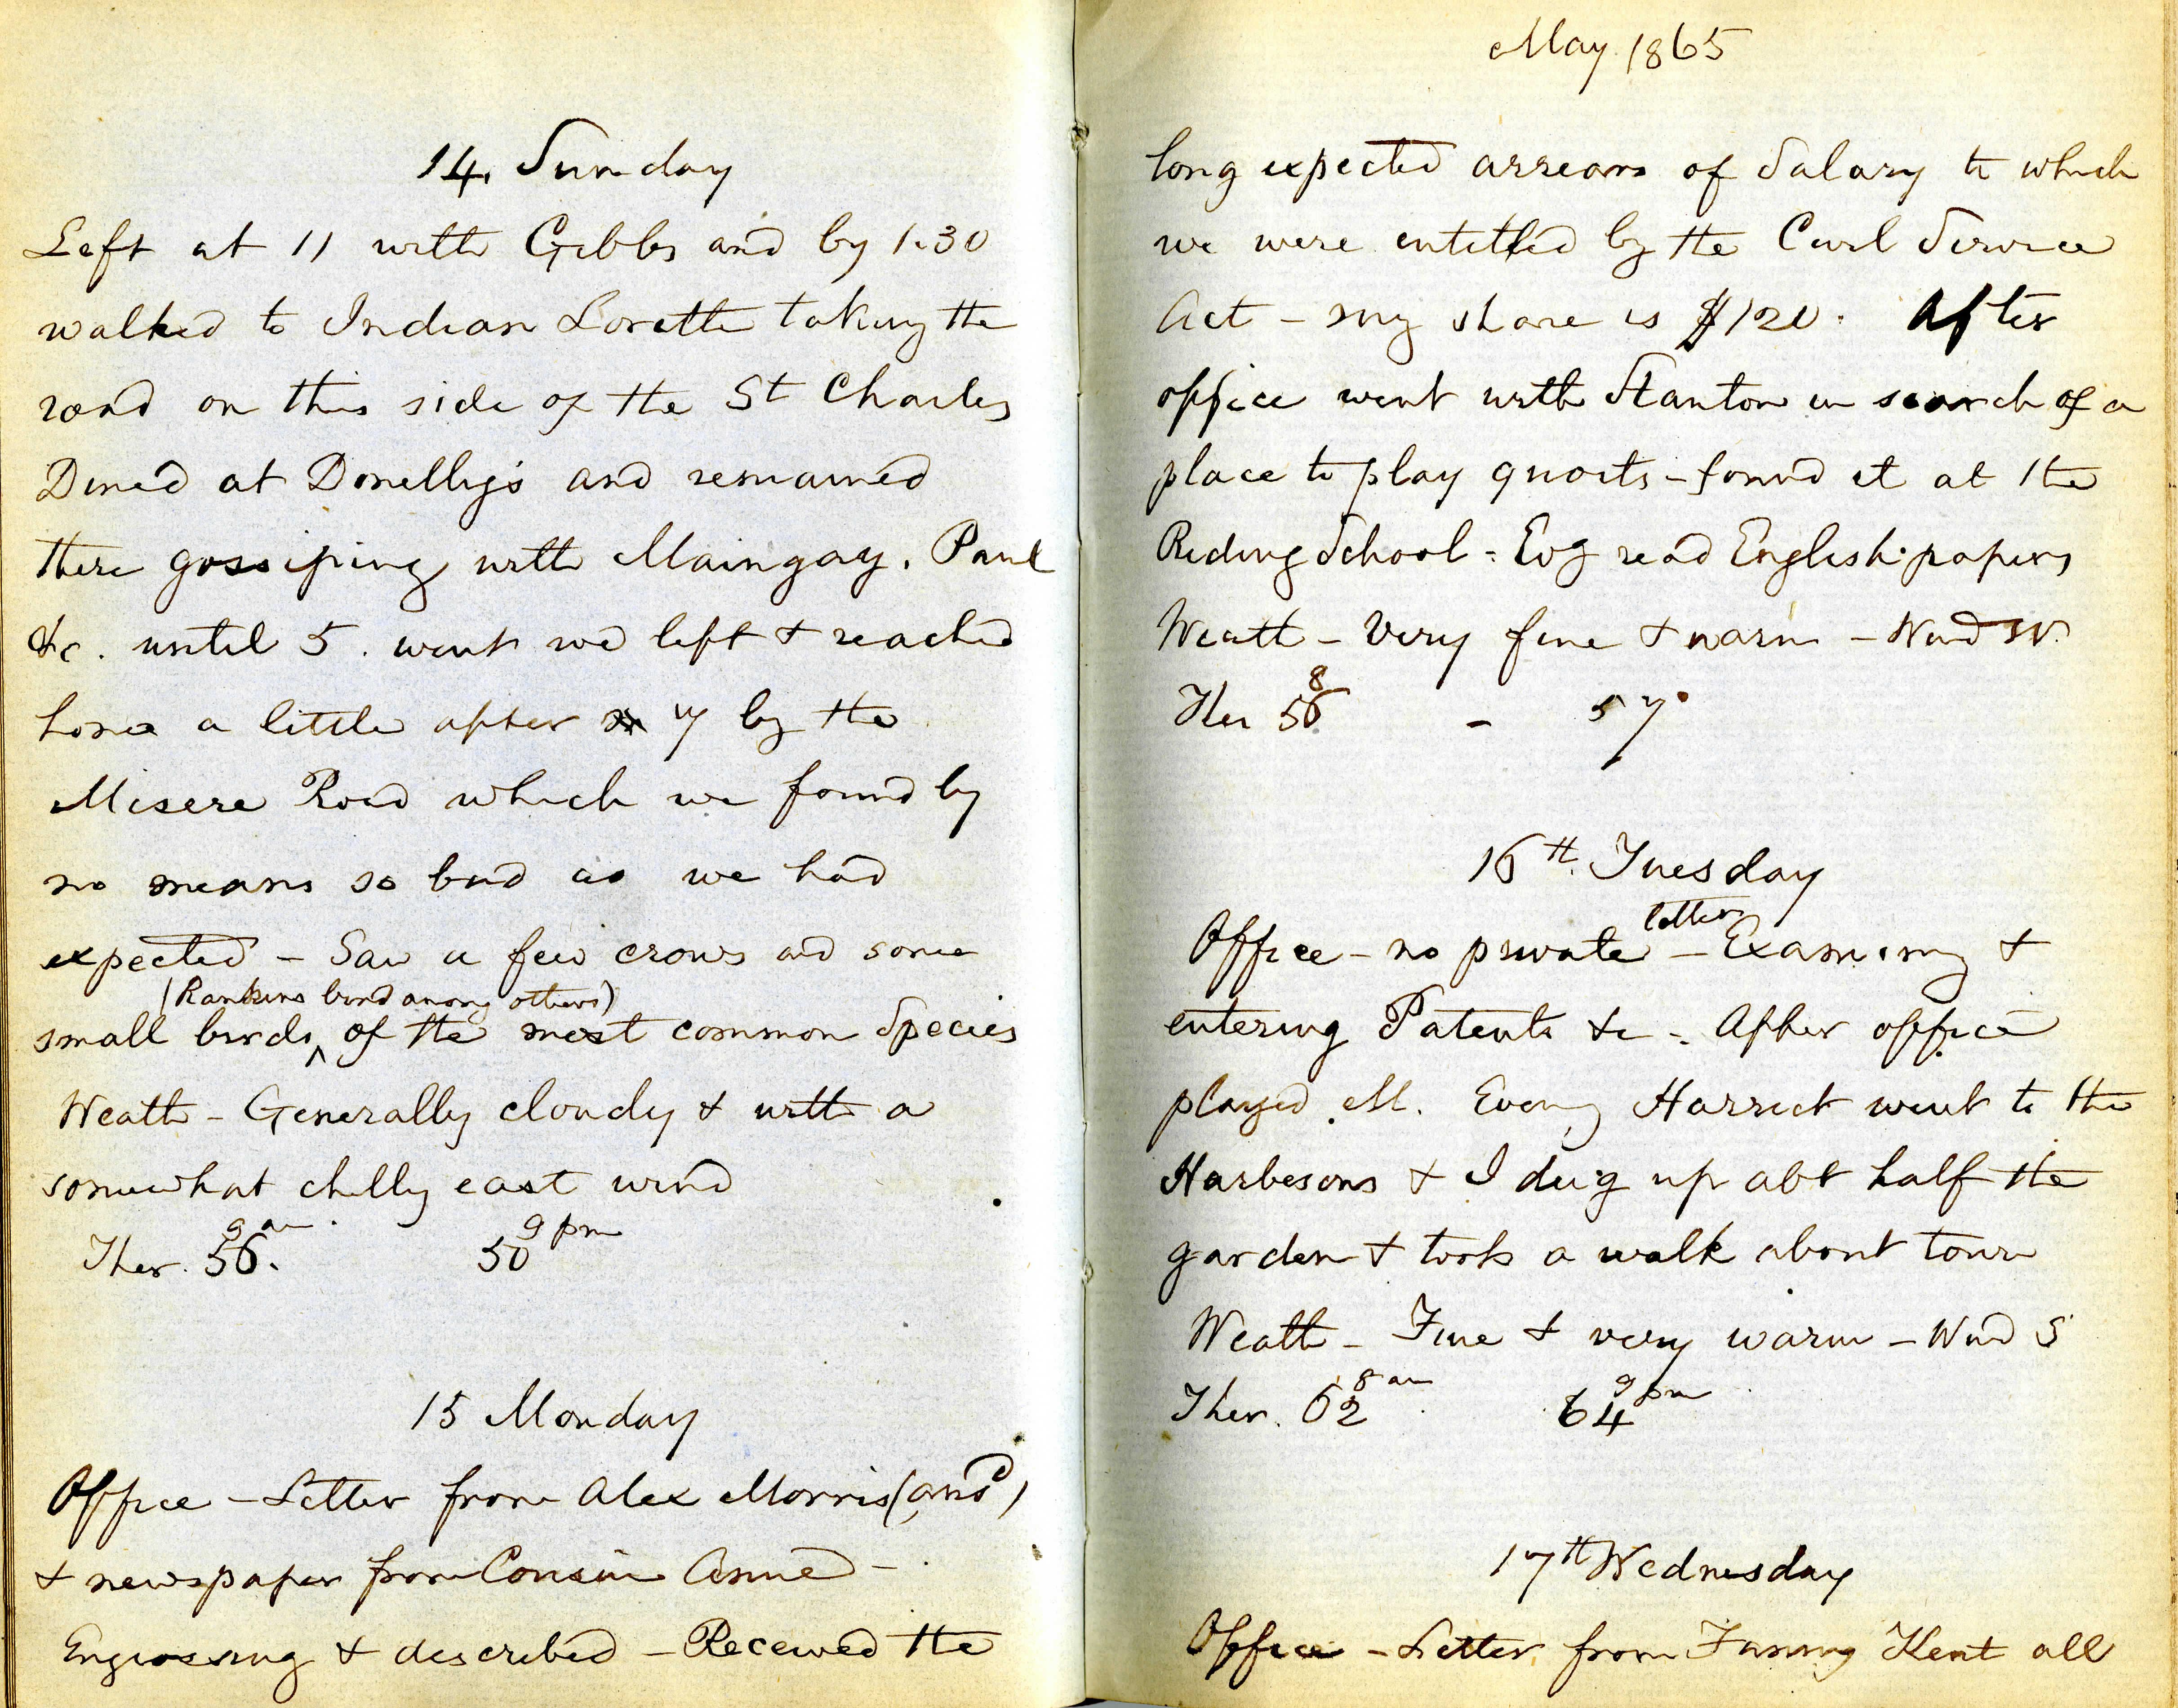 14. Sunday
Left at 11 with Gibbs and by 1.30
walked to Indian Lorette taking the
road on this side of the St Charles
Dined at Donelly's and remained
there gossiping with Maingay. Paul
&c. until 5. went we left & reached
home a little after 7 by the
Misere Road which we found by
no means so bad as we had
expected - Saw a few crows and some
(Rankins bird among others)
small birds, of the most common Species
Weath - Generally cloudy & with a
somewhat chilly east wind
Ther. 56. 9 am 50 9 pm
15 Monday
Office - Letter from Alex Morris (ansd)
& newspaper from Cousin Anne -
Engrossing & described - Received the
May 1865
long expected arrears of Salary to which
we were entitled by the Civil Service
Act - my share is $120. After
office went with Stanton in search of a
place to play quoits - found it at the
Riding School - Evg read English papers
Weath - Very fine & warm - Wind W.
Ther 56 8 - 57°
16th Tuesday
letters
Office - no private - Examining &
entering Patents &c - After office
played M. Eveng Harriet went to the
Harbesons & I dug up abt half the
garden & took a walk about town
Weath - Fine & very warm - Wind S
Ther. 62 8 am 64 9 pm
17th Wednesday
Office - Letter from Kent all